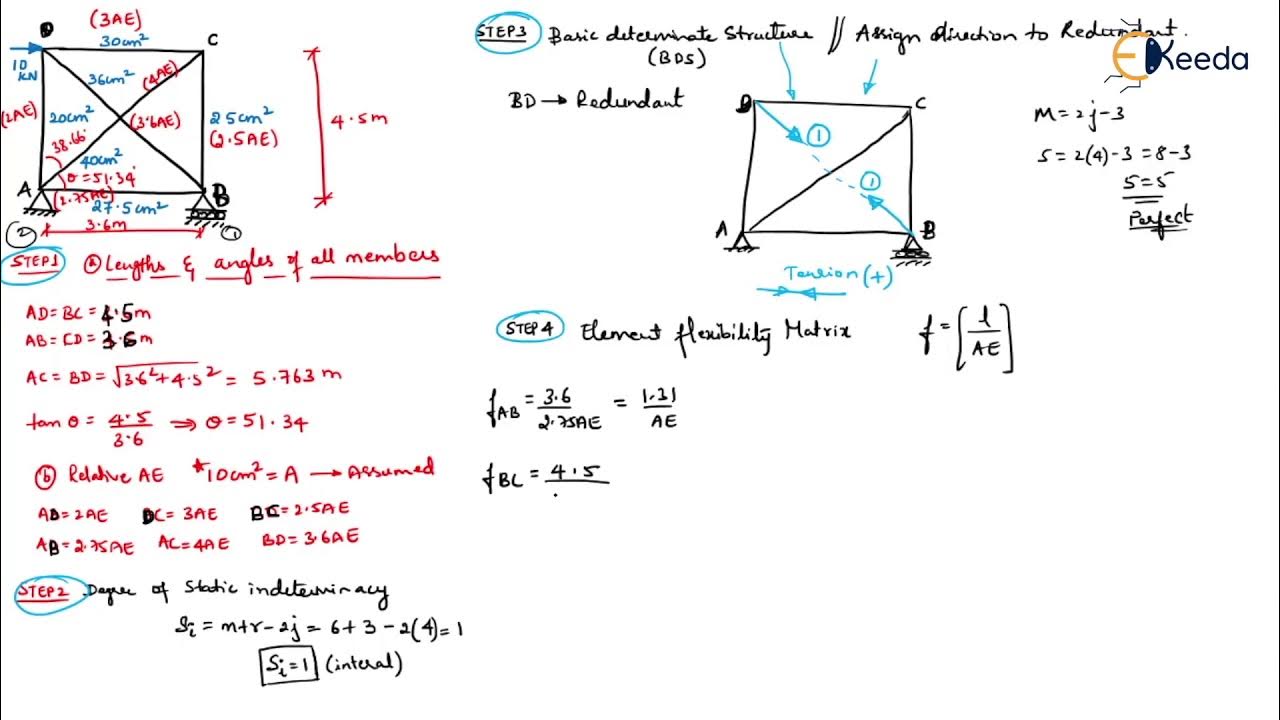 (3AE)
30cm²
D
C
10
KN
36cm²
(4AE)
(2AE)
20cm²
(3.6AE)
25cm²
(2.5AE)
4.5m
38.66
40cm²
θ=51.34°
A
B
(2.75AE)
27.5cm²
3.6m
②
①
STEP1 ⓐ Lengths & angles of all members
AD=BC=4.5m
AB=CD=3.6m
AC=BD=√3.6²+4.5² = 5.763m
tan θ = 4.5/3.6 ⇒ θ=51.34
ⓑ Relative AE *10cm²=A → Assumed
AD=2AE DC=3AE BC=2.5AE
AB=2.75AE AC=4AE BD=3.6AE
STEP2 Degree of static indeterminacy
Si = m+r-2j = 6+3-2(4)=1
Si=1 (interal)
STEP3 Basic determinate Structure // Assign direction to Redundant.
(BDS)
EKeeda
BD → Redundant
D
C
①
①
A
B
Tension (+)
m=2j-3
5=2(4)-3=8-3
5=5
Perfect
STEP4 Element flexibility Matrix f=[l/AE]
fAB = 3.6/2.75AE = 1.31/AE
fBC = 4.5